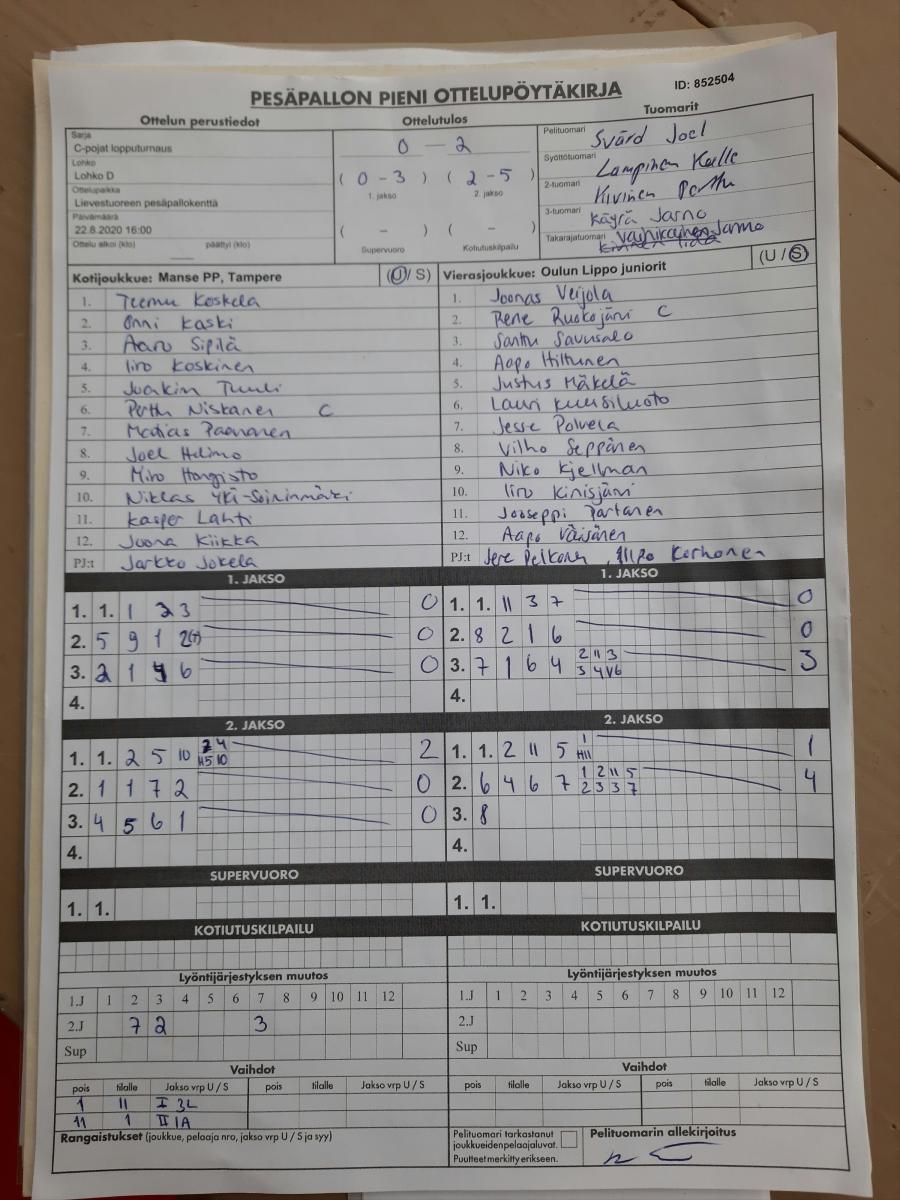 PESÄPALLON PIENI OTTELUPÖYTÄKIRJA ID: 852504
Ottelun perustiedot Ottelutulos Tuomarit
Sarja
C-pojat lopputurnaus
Lohko
Lohko D
Ottelupaikka
Lievestuoreen pesäpallokenttä
Päivämäärä
22.8.2020 16:00
Ottelu alkoi (klo) päättyi (klo)
0 - 2
( 0 - 3 ) ( 2 - 5 )
1. jakso 2. jakso
( - ) ( - )
Supervuoro Kotiutuskilpailu
Pelituomari Svärd Joel
Syöttötuomari Lampinen Kalle
2-tuomari Kivinen Perttu
3-tuomari Käyrä Jarno
Takarajatuomari Jarmo
Kotijoukkue: Manse PP, Tampere (U / S)
1. Teemu Koskela
2. Onni Kaski
3. Aaro Sipilä
4. Iiro Koskinen
5. Joakim Tuuli
6. Perttu Niskanen C
7. Matias Paananen
8. Joel Helimo
9. Miro Hongisto
10. Niklas Yki-Soininmäki
11. Kasper Lahti
12. Joona Kiikka
PJ:t Jarkko Jokela
Vierasjoukkue: Oulun Lippo juniorit (U / S)
1. Joonas Veijola
2. Rene Ruokojärvi C
3. Santtu Savusalo
4. Aapo Hiltunen
5. Justus Mäkelä
6. Lauri Kuusiluoto
7. Jesse Polvela
8. Vilho Seppänen
9. Niko Kjellman
10. Iiro Kinisjärvi
11. Jooseppi Partanen
12. Aapo Väisänen
PJ:t Jere Pelkonen, Ilpo Korhonen
1. JAKSO
1. 1. 1 2 3 0
2. 5 9 1 2(7) 0
3. 2 1 4 6 0
4.
1. JAKSO
1. 1. 11 3 7 0
2. 8 2 1 6 0
3. 7 1 6 4 2 11 3 3
3 4 V6
4.
2. JAKSO
1. 1. 2 5 10 2 4 2
H5 10
2. 1 1 7 2 0
3. 4 5 6 1 0
4.
2. JAKSO
1. 1. 2 11 5 1 1
H11
2. 6 4 6 7 1 2 11 5 4
2 3 3 7
3. 8
4.
SUPERVUORO SUPERVUORO
1. 1. 1. 1.
KOTIUTUSKILPAILU KOTIUTUSKILPAILU
Lyöntijärjestyksen muutos Lyöntijärjestyksen muutos
1.J 1 2 3 4 5 6 7 8 9 10 11 12 1.J 1 2 3 4 5 6 7 8 9 10 11 12
2.J 7 2 3 2.J
Sup Sup
Vaihdot Vaihdot
pois tilalle Jakso vrp U / S pois tilalle Jakso vrp U / S pois tilalle Jakso vrp U / S pois tilalle Jakso vrp U / S
1 11 I 3L
11 1 II 1A
Rangaistukset (joukkue, pelaaja nro, jakso vrp U / S ja syy)
Pelituomari tarkastanut
joukkueidenpelaajaluvat.
Puutteet merkitty erikseen.
Pelituomarin allekirjoitus